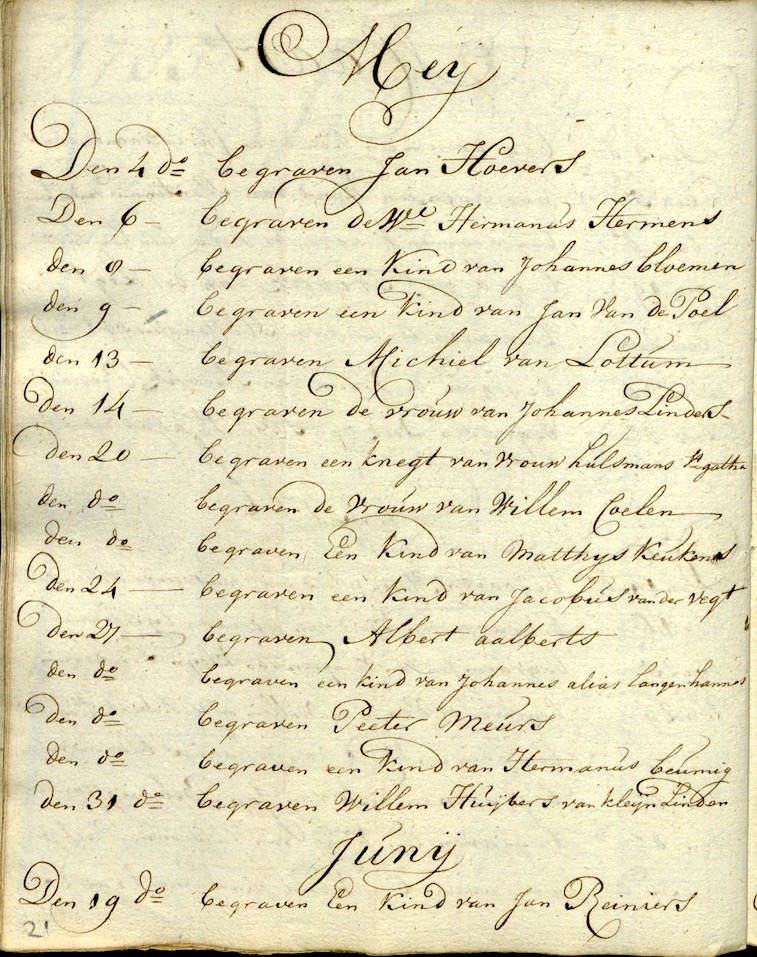 Meij
Den 4 do begraven Jan Hoevers
Den 6 – begraven de We Hermanus Hermens
den 9 – begraven een Kind van Johannes bloemen
den 9 – begraven een Kind van Jan Van de Poel
den 13 – begraven Michiel van Lottum
Den 14 – begraven de vrouw van Johannes Linders
den 20 – begraven een knegt van vrouw hulsmans Agatha
den do begraven de vrouw van Willem Coelen
den do begraven Een Kind van Matthys Keukens
Den 24 – begraven een Kind van Jacobus van der vegt
Den 27 – begraven Albert aalberts
den do begraven een kind van Johannes alias langenhannes
den do begraven Peeter Meurs
den do begraven een Kind van Hermanus beumig
den 31 do begraven Willem Huijbers van kleyn Linden
Junij
Den 19 do begraven Een Kind van Jan Reiniers
21